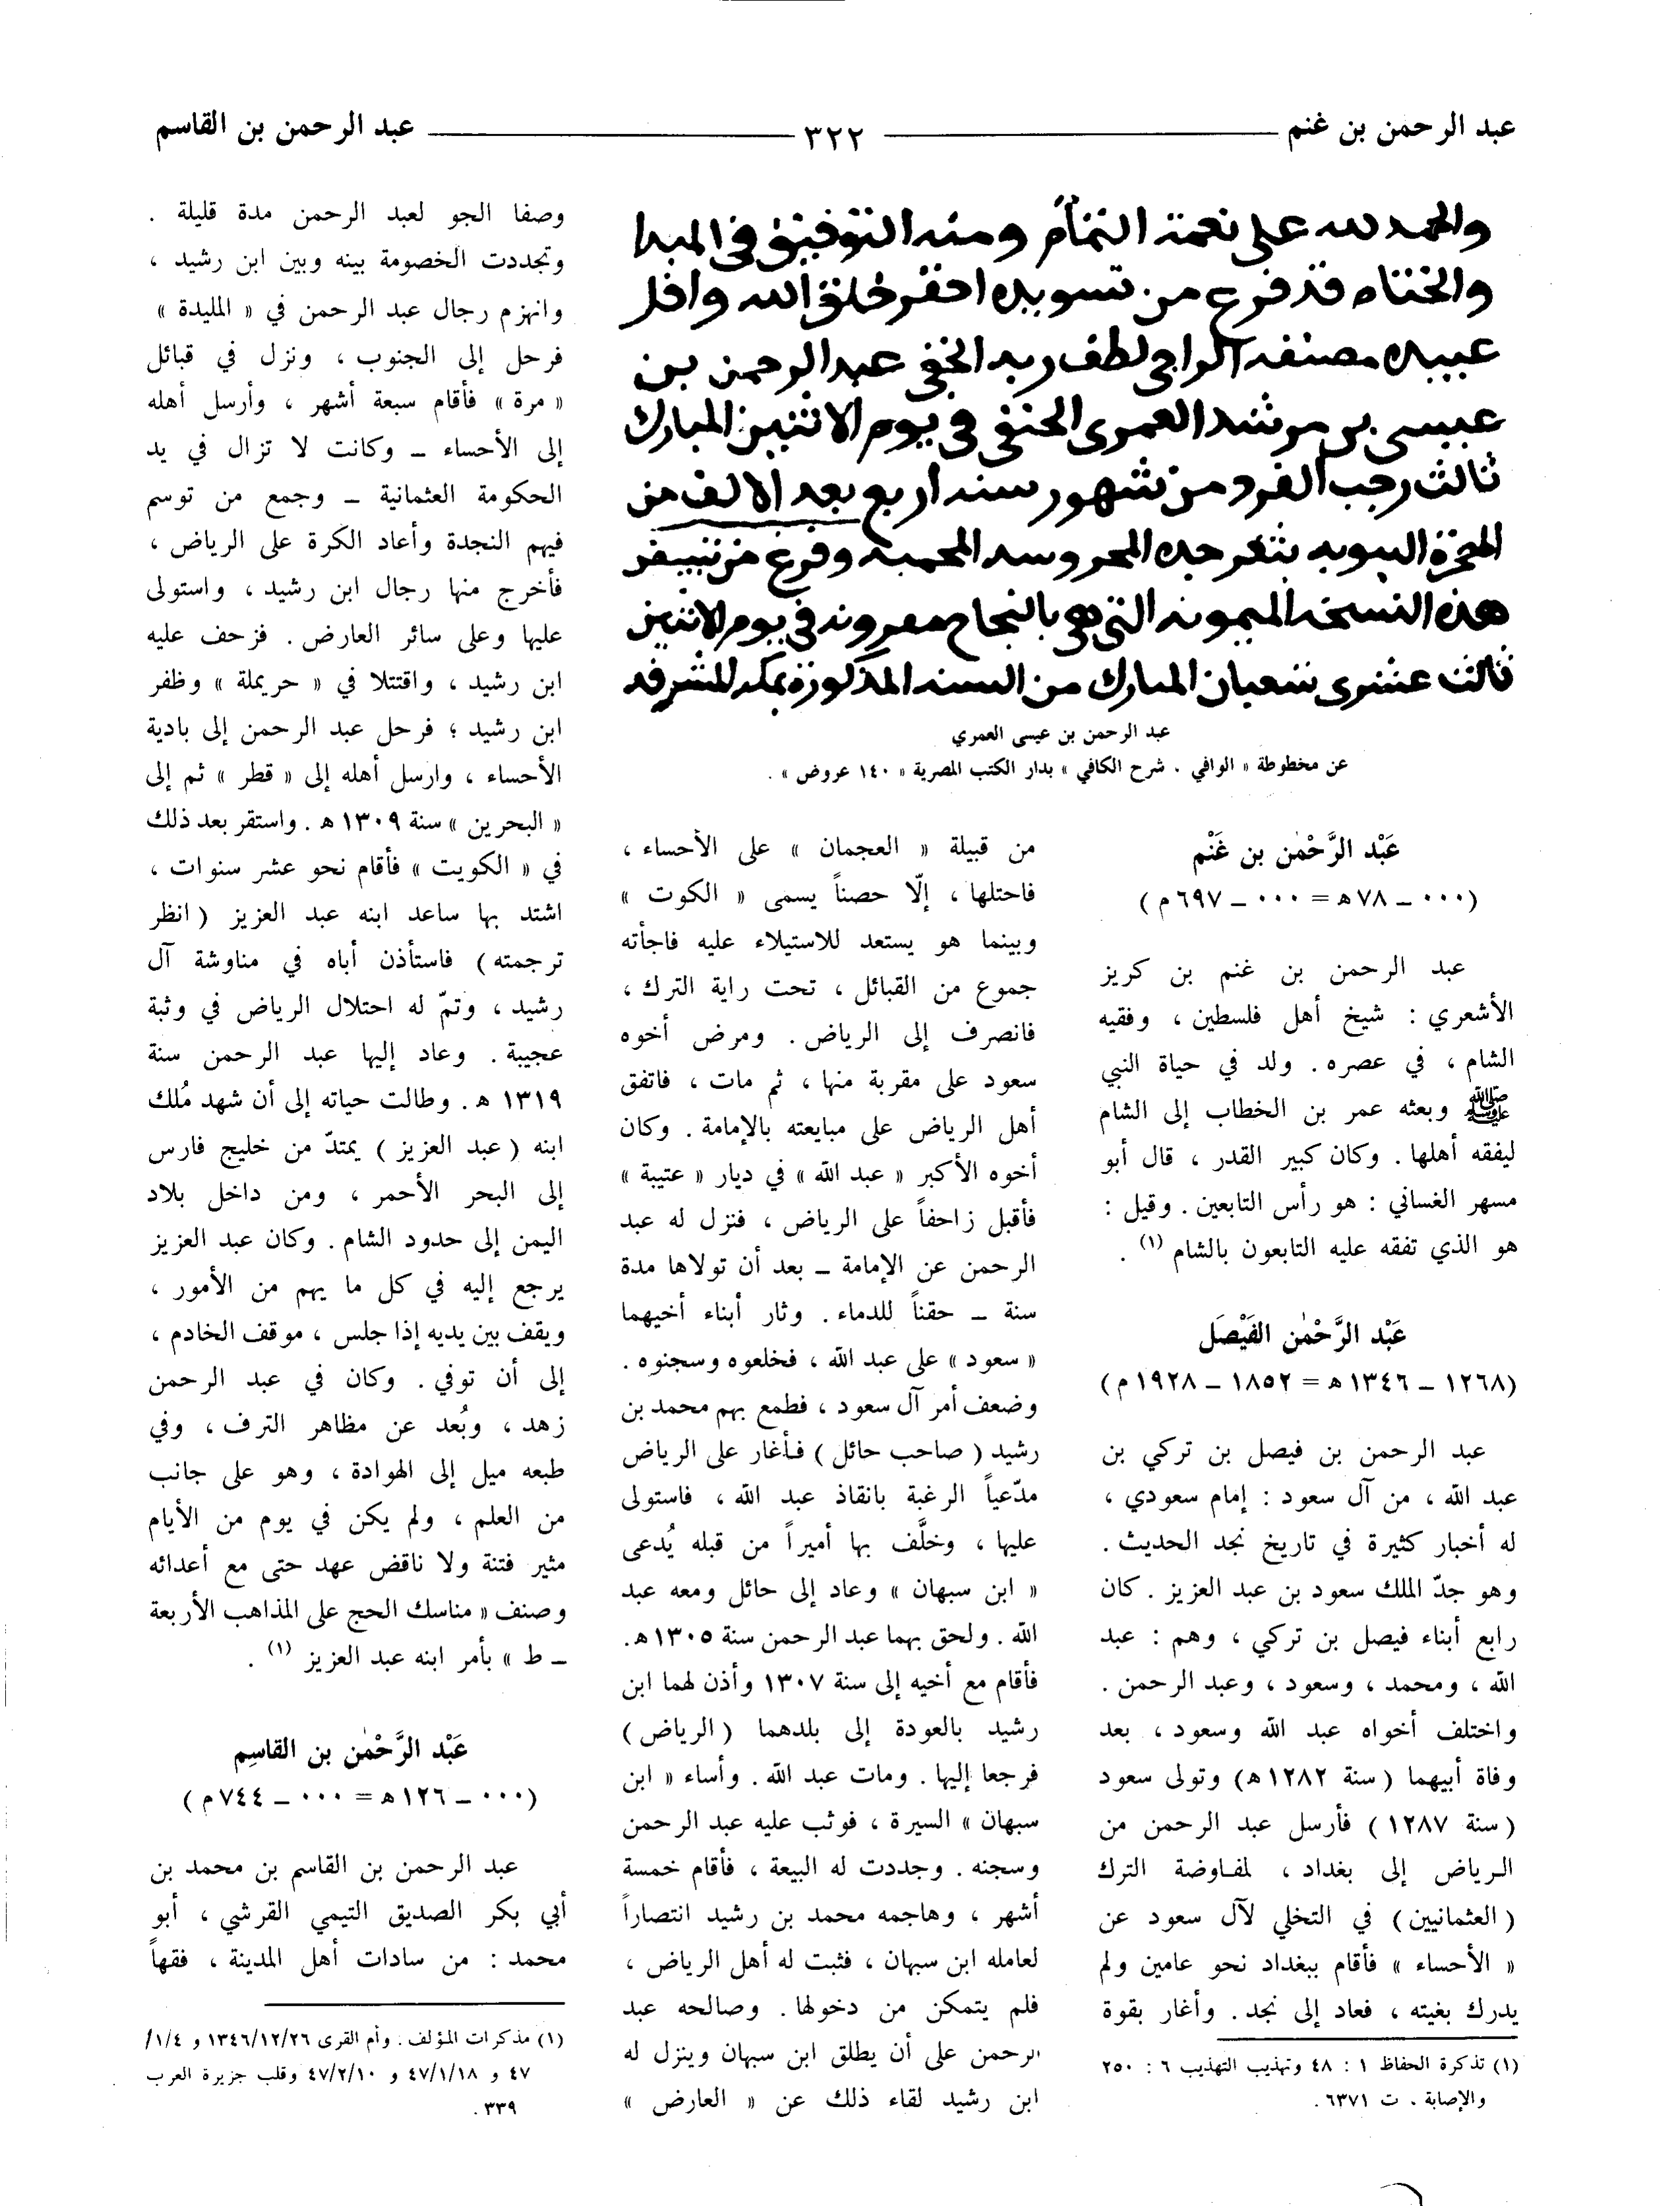 عبد الرحمن بن غنم ــــ ٣٢٢ ــــ عبد الرحمن بن القاسم
والحمد لله على نعمة التمام ومنه التوفيق في المبدا
والختام قد فرغ من تسويده احقر خلق الله واقل
عبيده مصنفه الراجي لطف ربه الخفي عبد الرحمن بن
عيسى بن مرشد العمري الحنفي في يوم الاثنين المبارك
ثالث رجب الفرد من شهور سنه اربع بعد الالف من
الهجرة النبويه بثغر جده المحروسه المحميه وفرغ من تبييض
هذه النسخه الميمونه التي هي بالنجاح مقرونه في يوم الاثنين
ثالث عشري شعبان المبارك من السنه المذكورة بمكه المشرفه
عبد الرحمن بن عيسى العمري
عن مخطوطة « الوافي . شرح الكافي » بدار الكتب المصرية « ١٤٠ عروض » .
عَبْد الرَّحْمٰن بن غَنْم
(٠٠٠ ــ ٧٨ هـ = ٠٠٠ ــ ٦٩٧ م )
عبد الرحمن بن غنم بن كريز
الأشعري : شيخ أهل فلسطين ، وفقيه
الشام ، في عصره . ولد في حياة النبي
ﷺ وبعثه عمر بن الخطاب إلى الشام
ليفقه أهلها . وكان كبير القدر ، قال أبو
مسهر الغساني : هو رأس التابعين . وقيل :
هو الذي تفقه عليه التابعون بالشام (١) .
عَبْد الرَّحْمٰن الفَيْصَل
(١٢٦٨ ــ ١٣٤٦ هـ = ١٨٥٢ ــ ١٩٢٨ م )
عبد الرحمن بن فيصل بن تركي بن
عبد الله ، من آل سعود : إمام سعودي ،
له أخبار كثيرة في تاريخ نجد الحديث .
وهو جدّ الملك سعود بن عبد العزيز . كان
رابع أبناء فيصل بن تركي ، وهم : عبد
الله ، ومحمد ، وسعود ، وعبد الرحمن .
واختلف أخواه عبد الله وسعود ، بعد
وفاة أبيهما (سنة ١٢٨٢ هـ) وتولى سعود
(سنة ١٢٨٧ ) فأرسل عبد الرحمن من
الرياض إلى بغداد ، لمفاوضة الترك
(العثمانيين ) في التخلي لآل سعود عن
« الأحساء » فأقام ببغداد نحو عامين ولم
يدرك بغيته ، فعاد إلى نجد . وأغار بقوة
(١) تذكرة الحفاظ ١ : ٤٨ وتهذيب التهذيب ٦ : ٢٥٠
والإصابة ، ت ٦٣٧١ .
من قبيلة « العجمان » على الأحساء ،
فاحتلها ، إلّا حصناً يسمى « الكوت »
وبينما هو يستعد للاستيلاء عليه فاجأته
جموع من القبائل ، تحت راية الترك ،
فانصرف إلى الرياض . ومرض أخوه
سعود على مقربة منها ، ثم مات ، فاتفق
أهل الرياض على مبايعته بالإمامة . وكان
أخوه الأكبر « عبد الله » في ديار « عتيبة »
فأقبل زاحفاً على الرياض ، فنزل له عبد
الرحمن عن الإمامة ــ بعد أن تولاها مدة
سنة ــ حقناً للدماء . وثار أبناء أخيهما
« سعود » على عبد الله ، فخلعوه وسجنوه .
وضعف أمر آل سعود ، فطمع بهم محمد بن
رشيد ( صاحب حائل ) فأغار على الرياض
مدّعياً الرغبة بانقاذ عبد الله ، فاستولى
عليها ، وخلَّف بها أميراً من قبله يُدعى
« ابن سبهان » وعاد إلى حائل ومعه عبد
الله . ولحق بهما عبد الرحمن سنة ١٣٠٥ هـ.
فأقام مع أخيه إلى سنة ١٣٠٧ وأذن لهما ابن
رشيد بالعودة إلى بلدهما (الرياض )
فرجعا إليها . ومات عبد الله . وأساء « ابن
سبهان » السيرة ، فوثب عليه عبد الرحمن
وسجنه . وجددت له البيعة ، فأقام خمسة
أشهر ، وهاجمه محمد بن رشيد انتصاراً
لعامله ابن سبهان ، فثبت له أهل الرياض ،
فلم يتمكن من دخولها . وصالحه عبد
الرحمن على أن يطلق ابن سبهان وينزل له
ابن رشيد لقاء ذلك عن « العارض »
وصفا الجو لعبد الرحمن مدة قليلة .
وتجددت الخصومة بينه وبين ابن رشيد ،
وانهزم رجال عبد الرحمن في « المليدة »
فرحل إلى الجنوب ، ونزل في قبائل
« مرة » فأقام سبعة أشهر ، وأرسل أهله
إلى الأحساء ــ وكانت لا تزال في يد
الحكومة العثمانية ــ وجمع من توسم
فيهم النجدة وأعاد الكرة على الرياض ،
فأخرج منها رجال ابن رشيد ، واستولى
عليها وعلى سائر العارض . فزحف عليه
ابن رشيد ، واقتتلا في « حريملة » وظفر
ابن رشيد ؛ فرحل عبد الرحمن إلى بادية
الأحساء ، وارسل أهله إلى « قطر » ثم إلى
« البحرين » سنة ١٣٠٩ هـ . واستقر بعد ذلك
في « الكويت » فأقام نحو عشر سنوات ،
اشتد بها ساعد ابنه عبد العزيز ( انظر
ترجمته ) فاستأذن أباه في مناوشة آل
رشيد ، وتمّ له احتلال الرياض في وثبة
عجيبة . وعاد إليها عبد الرحمن سنة
١٣١٩ هـ . وطالت حياته إلى أن شهد مُلك
ابنه ( عبد العزيز ) يمتدّ من خليج فارس
إلى البحر الأحمر ، ومن داخل بلاد
اليمن إلى حدود الشام . وكان عبد العزيز
يرجع إليه في كل ما يهم من الأمور ،
ويقف بين يديه إذا جلس ، موقف الخادم ،
إلى أن توفي . وكان في عبد الرحمن
زهد ، وبُعد عن مظاهر الترف ، وفي
طبعه ميل إلى الهوادة ، وهو على جانب
من العلم ، ولم يكن في يوم من الأيام
مثير فتنة ولا ناقض عهد حتى مع أعدائه
وصنف « مناسك الحج على المذاهب الأربعة
ــ ط » بأمر ابنه عبد العزيز (١) .
عَبْد الرَّحْمٰن بن القاسِم
(٠٠٠ ــ ١٢٦ هـ = ٠٠٠ ــ ٧٤٤ م )
عبد الرحمن بن القاسم بن محمد بن
أبي بكر الصديق التيمي القرشي ، أبو
محمد : من سادات أهل المدينة ، فقهاً
(١) مذكرات المؤلف . وأم القرى ١٣٤٦/١٢/٢٦ و ١/٤/
٤٧ و ٤٧/١/١٨ و ٤٧/٢/١٠ وقلب جزيرة العرب
٣٣٩ .